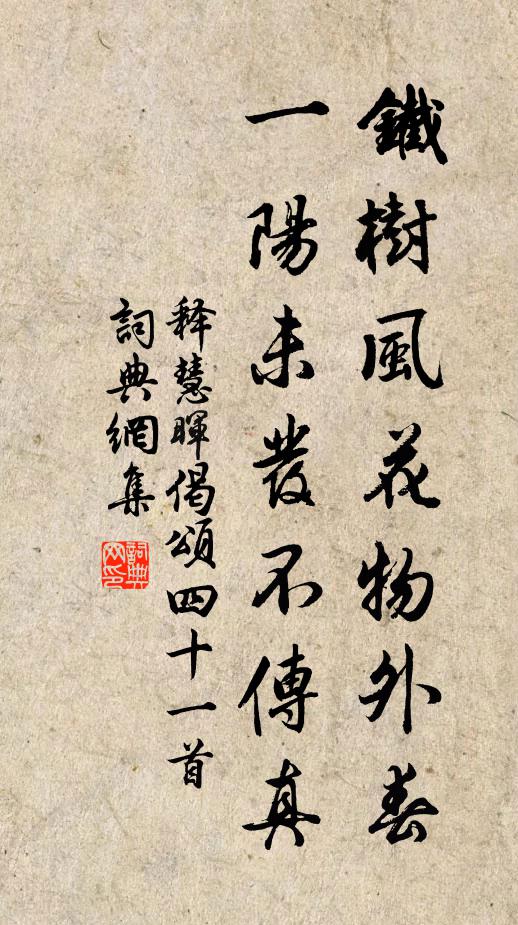 鐵樹風花物外春
一陽未發不傳真
释慧暉偈頌四十一首
詞典網集
詞典網印